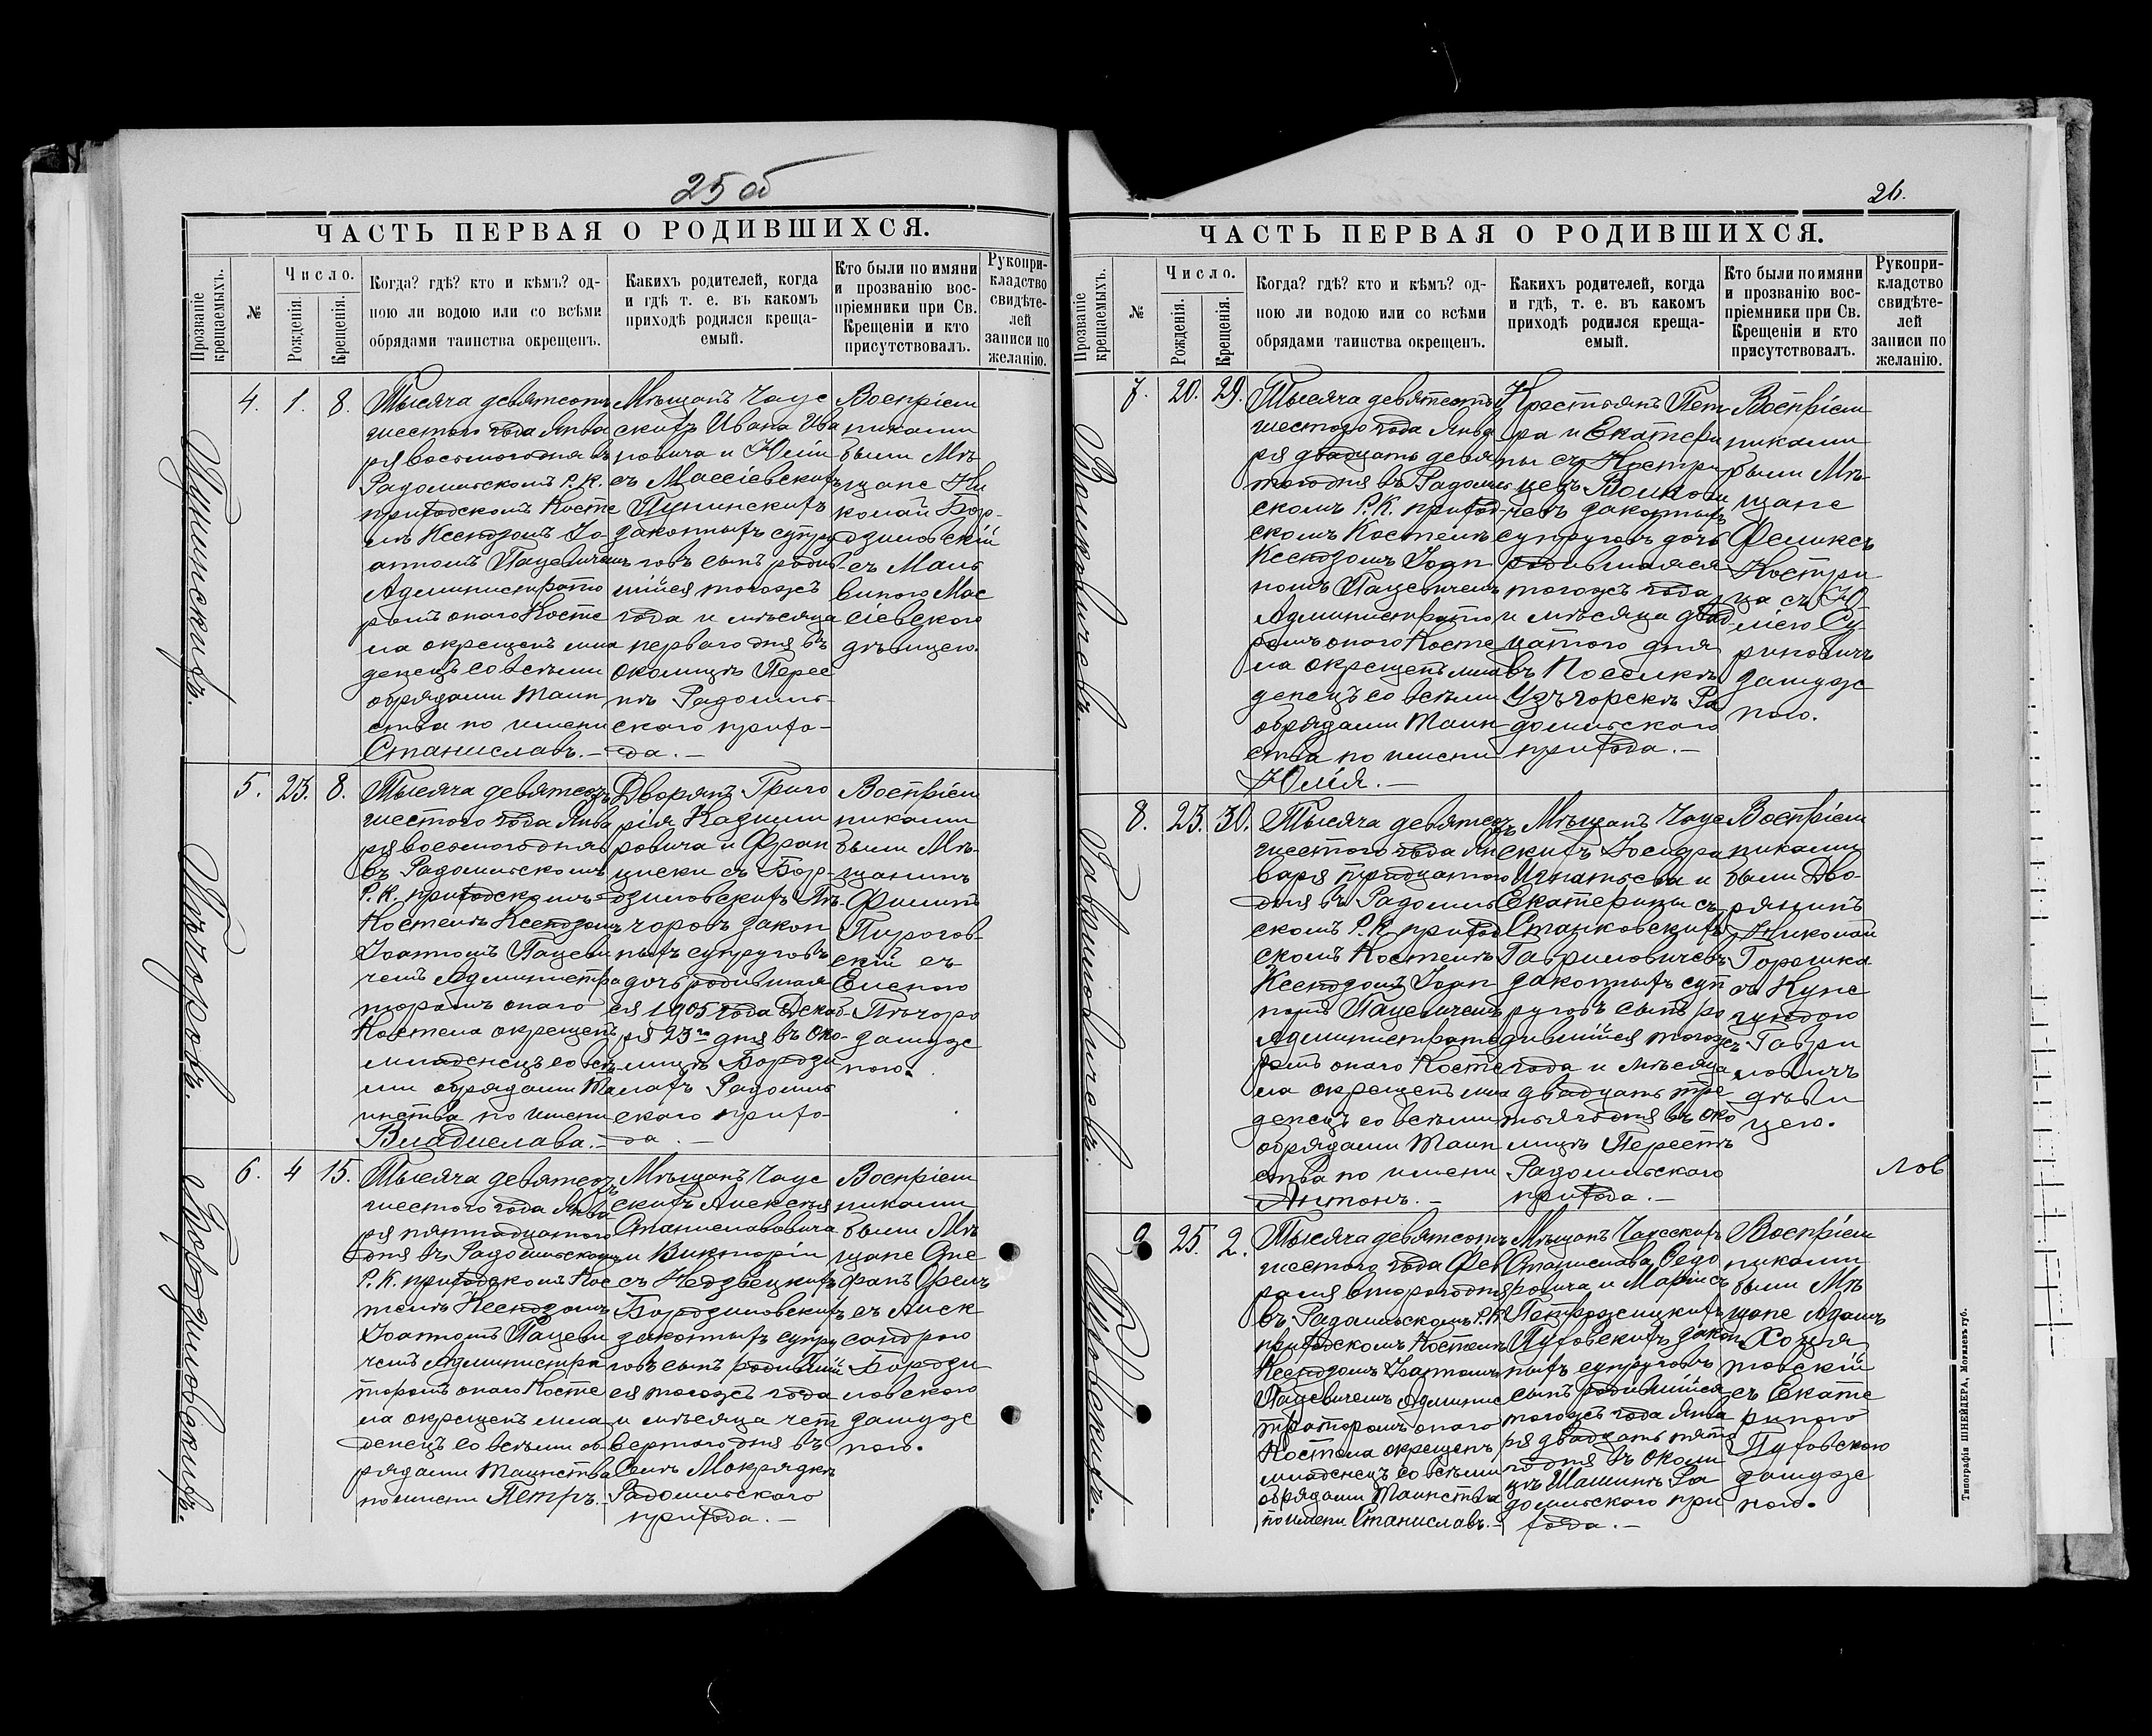 25 об
ЧАСТЬ ПЕРВАЯ О РОДИВШИХСЯ.
Прозваніе крещаемыхъ.
№
Число.
Рожденія.
Крещенія.
Когда? гдѣ? кто и кѣмъ? од-
ною ли водою или со всѣми
обрядами таинства окрещенъ.
Каихъ родителей, когда
и гдѣ т. е. въ какомъ
приходѣ родился креща-
емый.
Кто были по имяни
и прозванію вос-
пріемники при Св.
Крещеніи и кто
присутствовалъ.
Рукопри-
кладство
свидѣте-
лей
записи по
желанію.
4. 1. 8.
Тысяча девятсотъ
шестого года Янва
ря восьмого дня въ
Радомльскомъ Р. К.
приходскомъ Косте
лѣ Ксендзомъ Іо-
анномъ Пацевичемъ
Администрато
ромъ онаго Косте
ла окрещенъ мла
денецъ со всѣми
обрядами Таин
ства по имени
Станиславъ.—
Мѣщанъ Чаус
скихъ Ивана Ива
новича и Юліи
съ Массіевскихъ
законныхъ супру
говъ сынъ родив-
шійся тогожъ
года и мѣсяца
перваго дня въ
околицѣ Перес
нѣ Радомль-
ского прихо-
да.—
Воспріем
никами
были Мѣ-
щане Ни
колай Бор-
дзиловскій
съ Маль
виною Мас
сіевскою
дѣвицею.
5. 23. 8.
Пѣчоровъ.
Тысяча девятсотъ
шестого года Янва
ря восьмого дня
въ Радомльскомъ
Р. К. приходскомъ
Костелѣ Ксендзомъ
Іоанномъ Пацеви
чемъ Администра
торомъ онаго
Костела окрещенъ
младенецъ со всѣ
ми обрядами Та
инства по имени
Владислава.—
Дворянъ Григо
рія Казими
ровича и Фран
циски съ Бор-
дзиловскихъ Пѣ-
чоровъ закон
ныхъ супруговъ
дочь родившая
ся 1905 года Декаб
ря 23го дня въ око-
лицѣ Бордзи
лахъ Радомль
ского прихо-
да.—
Воспріем
никами
были Мѣ-
щанинъ
Филипъ
Пирогов-
скій съ
Еленою
Пѣчоро
замуж
ною.
6. 4 15.
Бордзиловскихъ.
Тысяча девятсотъ
шестого года Янва
ря пятнадцатого
дня въ Радомльскомъ
Р. К. приходскомъ Кос
телѣ Ксендзомъ
Іоанномъ Пацеви
чемъ Администра
торомъ онаго Косте
ла окрещенъ мла
денецъ со всѣми об
рядами Таинства
по имени Петръ.—
Мѣщанъ Чаус
скихъ Алексѣя
Станиславовича
и Викторіи
съ Недзвецкихъ
Бордзиловскихъ
законныхъ супру
говъ сынъ родившій
ся тогожъ года
и мѣсяца чет
вертого дня въ
Селѣ Мокрядкѣ
Радомльского
прихода.—
Воспріем
никами
были Мѣ
щане
съ Алек
сандрою
Бордзи
ловскою
замуж
ною.
26.
ЧАСТЬ ПЕРВАЯ О РОДИВШИХСЯ.
Прозваніе крещаемыхъ.
№
Число.
Рожденія.
Крещенія.
Когда? гдѣ? кто и кѣмъ? од-
ною ли водою или со всѣми
обрядами таинства окрещенъ.
Какихъ родителей, когда
и гдѣ, т. е. въ какомъ
приходѣ родился креща-
емый.
Кто были по имяни
и прозванію вос-
пріемники при Св.
Крещеніи и кто
присутствовалъ.
Рукопри-
кладство
свидѣте-
лей
записи по
желанію.
7. 20. 29.
Волковичевъ
Тысяча девятсотъ
шестого года Янва
ря двадцать девя
того дня въ Радомль
скомъ Р. К. приход-
скомъ Костелѣ
Ксендзомъ Іоан
номъ Пацевичемъ
Администрато
ромъ онаго Косте
ла окрещенъ мла
денецъ со всѣми
обрядами Таин
ства по имени
Юлія.—
Крестьянъ Пет
ра и Екатери
ны съ Костри
цевъ Волкови
чевъ законныхъ
супруговъ дочь
родившаяся
тогожъ года
и мѣсяца двад
цатого дня
въ Поселкѣ
Узъгорскѣ Ра
домльского
прихода.—
Воспріем
никами
были Мѣ-
щане
Феликсъ
Костри
ца съ Ю-
ліею Су-
риновичъ
замуж
ною.
8. 23. 30.
Гавриловичевъ.
Тысяча девятсотъ
шестого года Ян
варя тридцатого
дня въ Радомль
скомъ Р. К. приход
скомъ Костелѣ
Ксендзомъ Іоан
номъ Пацевичемъ
Администрато
ромъ онаго Косте
ла окрещенъ мла
денецъ со всѣми
обрядами Таин
ства по имени
Антонъ.—
Мѣщанъ Чаус
скихъ Іосифа
Игнатьева и
Екатерины съ
Станковскихъ
Гавриловичевъ
законныхъ суп
руговъ сынъ ро
дившійся тогожъ
года и мѣсяца
двадцать тре
тьяго дня въ око
лицѣ Переснѣ
Радомльского
прихода.—
Воспріем
никами
были Дво-
рянинъ
Николай
Горошка
съ Куне
гундою
Гаври
ловичъ
дѣви
цею.
Лов
9 25. 2.
Тысяча девятсотъ
шестого года Фев
раля второго дня
въ Радомльскомъ Р.К.
приходскомъ Костелѣ
Ксендзомъ Іоанномъ
Пацевичемъ Админис
траторомъ онаго
Костела окрещенъ
младенецъ со всѣми
обрядами Таинства
по имени Станиславъ.—
Мѣщанъ Чаусскихъ
Станислава Федо
ровича и Маріи съ
Петрожицкихъ
Пуховскихъ закон
ныхъ супруговъ
сынъ родившійся
тогожъ года Янва
ря двадцать пято
го дня въ околи
цѣ Шашинѣ Ра
домльского при
хода.—
Воспріем
никами
были Мѣ
щане Адамъ
Ходзя
товскій
съ Екате
риною
Пуховскою
замуж
ною.
Типографія ШНЕЙДЕРА, Могилевъ губ.